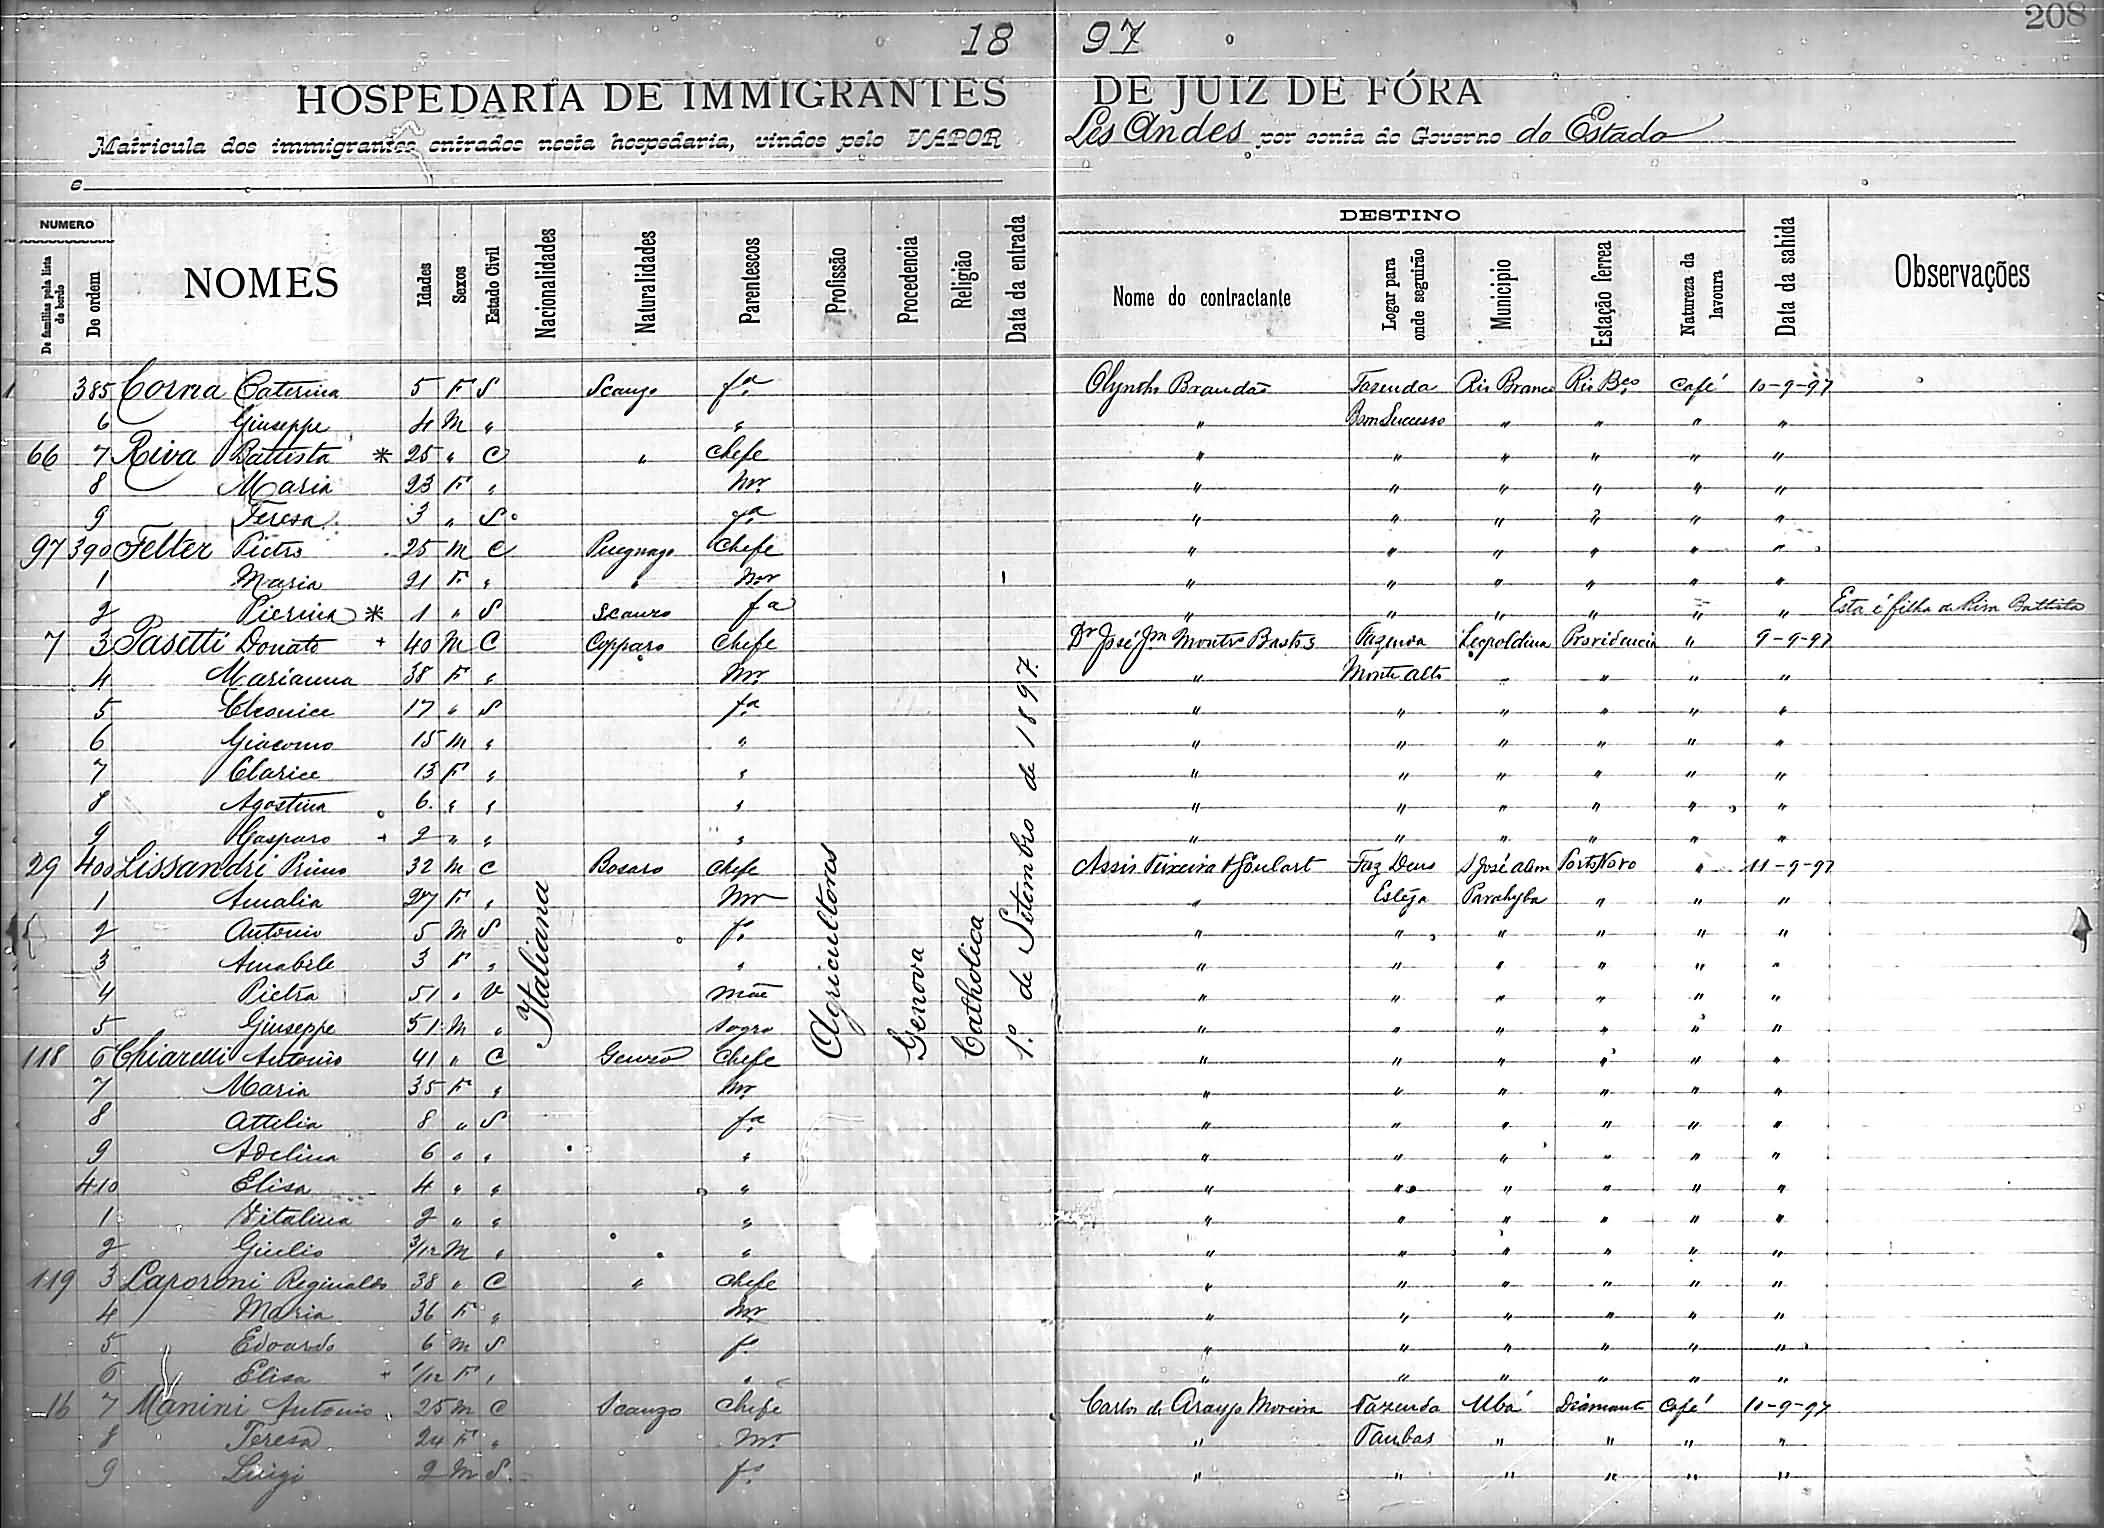 208
18 97
HOSPEDARIA DE IMMIGRANTES DE JUIZ DE FÓRA
Matricula dos immigrantes entrados nesta hospedaria, vindos pelo VAPOR Les Andes por conta do Governo do Estado
e
NUMERO DESTINO
De familias pela lista de bordo De ordem NOMES Idades Sexos Estado Civil Nacionalidades Naturalidades Parentescos Profissão Procedencia Religião Data da entrada Nome do contractante Logar para onde seguirão Municipio Estação ferrea Natureza da lavoura Data da sahida Observações
385 Corna Caterina 5 F S Scanzo fa Olyntho Brandão Fazenda Rio Branco Rio Bco Café 10-9-97
6 Giuseppe 4 M " " " Bom Sucesso " " " "
66 7 Riva Battista * 25 " C " Chefe " " " " " "
8 Maria 23 F " Mr " " " " " "
9 Teresa 3 " S fa " " " " " "
97 390 Felter Pietro 25 M C Puegnago Chefe " " " " " "
1 Maria 21 F " " Mr " " " " " "
2 Pierina * 1 " S Scanzo fa " " " " " " Esta é filha de Riva Battista
7 3 Pasetti Donato + 40 M C Copparo Chefe Dr José Jm Montro Bastos Fazenda Leopoldina Providencia " 9-9-97
4 Marianna 38 F " Mr " Monte Alto " " " "
5 Cleonice 17 " S fa " " " " " "
6 Giacomo 15 M " " " " " " " "
7 Clarice 13 F " " " " " " " "
8 Agostina 6 " " " " " " " " "
9 Gasparo + 2 " " " " " " " " "
29 400 Lissandri Primo 32 M C Bosaro Chefe Assis Teixeira & Goulart Faz Deus S José alem Porto Novo " 11-9-97
1 Amalia 27 F " Mr " Esteja Parahyba " " "
2 Antonio 5 M S fo " " " " " "
3 Amabile 3 F " " " " " " " "
4 Pietra 51 " V Mãe " " " " " "
5 Giuseppe 51 M " Sogro " " " " " "
118 6 Chiarelli Antonio 41 " C Chefe " " " " " "
7 Maria 35 F " Mr " " " " " "
8 Attilia 8 " S fa " " " " " "
9 Adelina 6 " " " " " " " " "
410 Elisa 4 " " " " " " " " "
1 Vitalina 2 " " " " " " " " "
2 Giulio 3/12 M " " " " " " " "
119 3 Laporoni Reginaldo 38 " C " Chefe " " " " " "
4 Maria 36 F " Mr " " " " " "
5 Edoardo 6 M S fo " " " " " "
6 Elisa + 1/12 F " " " " " " " "
16 7 Manini Antonio 25 M C Scanzo Chefe Carlos de Araujo Moreira Fazenda Ubá Diamante Café 10-9-97
8 Teresa 24 F " Mr " Taubas " " " "
9 Luigi 2 M S fo " " " " " "
Italiana
Agricultores
Genova
Catholica
1º de Setembro de 1897